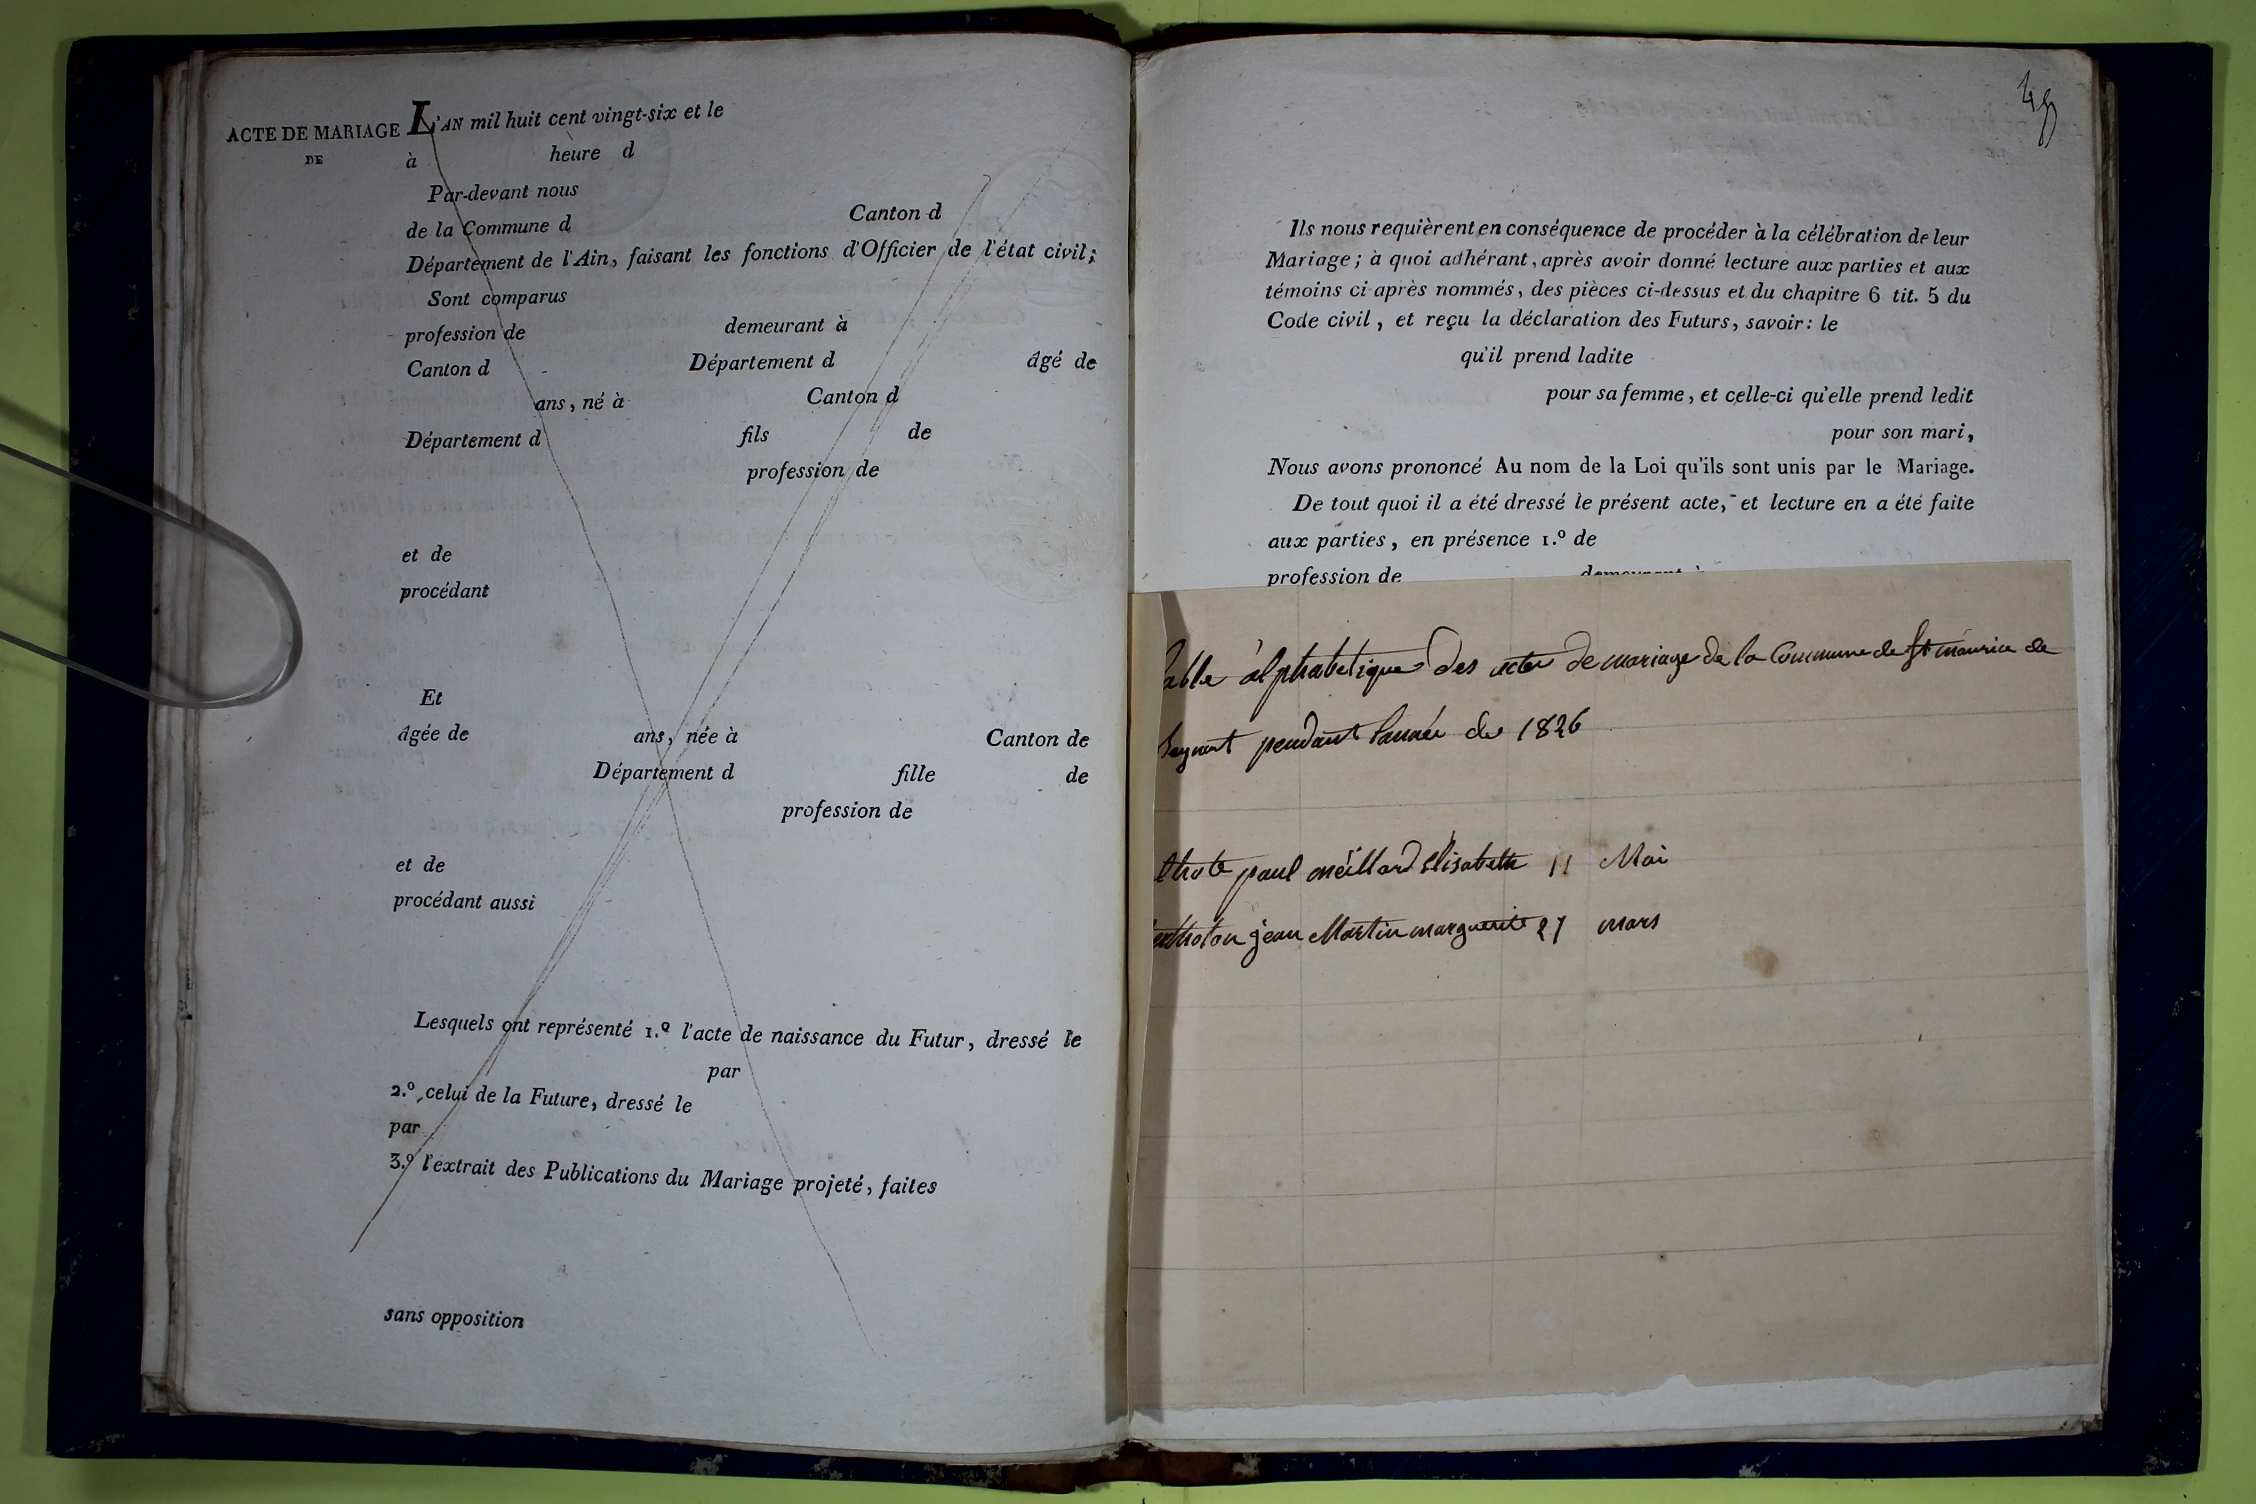 ACTE DE MARIAGE L'AN mil huit cent vingt-six et le
DE à heure d
Par-devant nous
de la Commune d Canton d
Département de l'Ain, faisant les fonctions d'Officier de l'état civil;
Sont comparus
profession de demeurant à
Canton d Département d âgé de
ans, né à Canton d
Département d fils de
profession de
et de
procédant
Et
âgée de ans, née à Canton de
Département d fille de
profession de
et de
procédant aussi
Lesquels ont représenté 1.º l'acte de naissance du Futur, dressé le
par
2.º celui de la Future, dressé le
par
3.º l'extrait des Publications du Mariage projeté, faites
sans opposition
Ils nous requièrent en conséquence de procéder à la célébration de leur
Mariage; à quoi adhérant, après avoir donné lecture aux parties et aux
témoins ci après nommés, des pièces ci-dessus et du chapitre 6 tit. 5 du
Code civil, et reçu la déclaration des Futurs, savoir: le
qu'il prend ladite
pour sa femme, et celle-ci qu'elle prend ledit
pour son mari,
Nous avons prononcé Au nom de la Loi qu'ils sont unis par le Mariage.
De tout quoi il a été dressé le présent acte, et lecture en a été faite
aux parties, en présence 1.º de
profession de demeurant à
able alphabetique des actes de mariage de la Commune de St maurice de
pendant l'année de 1826
paul méillard Elisabeth 11 Mai
jean Martin marguerite 27 mars